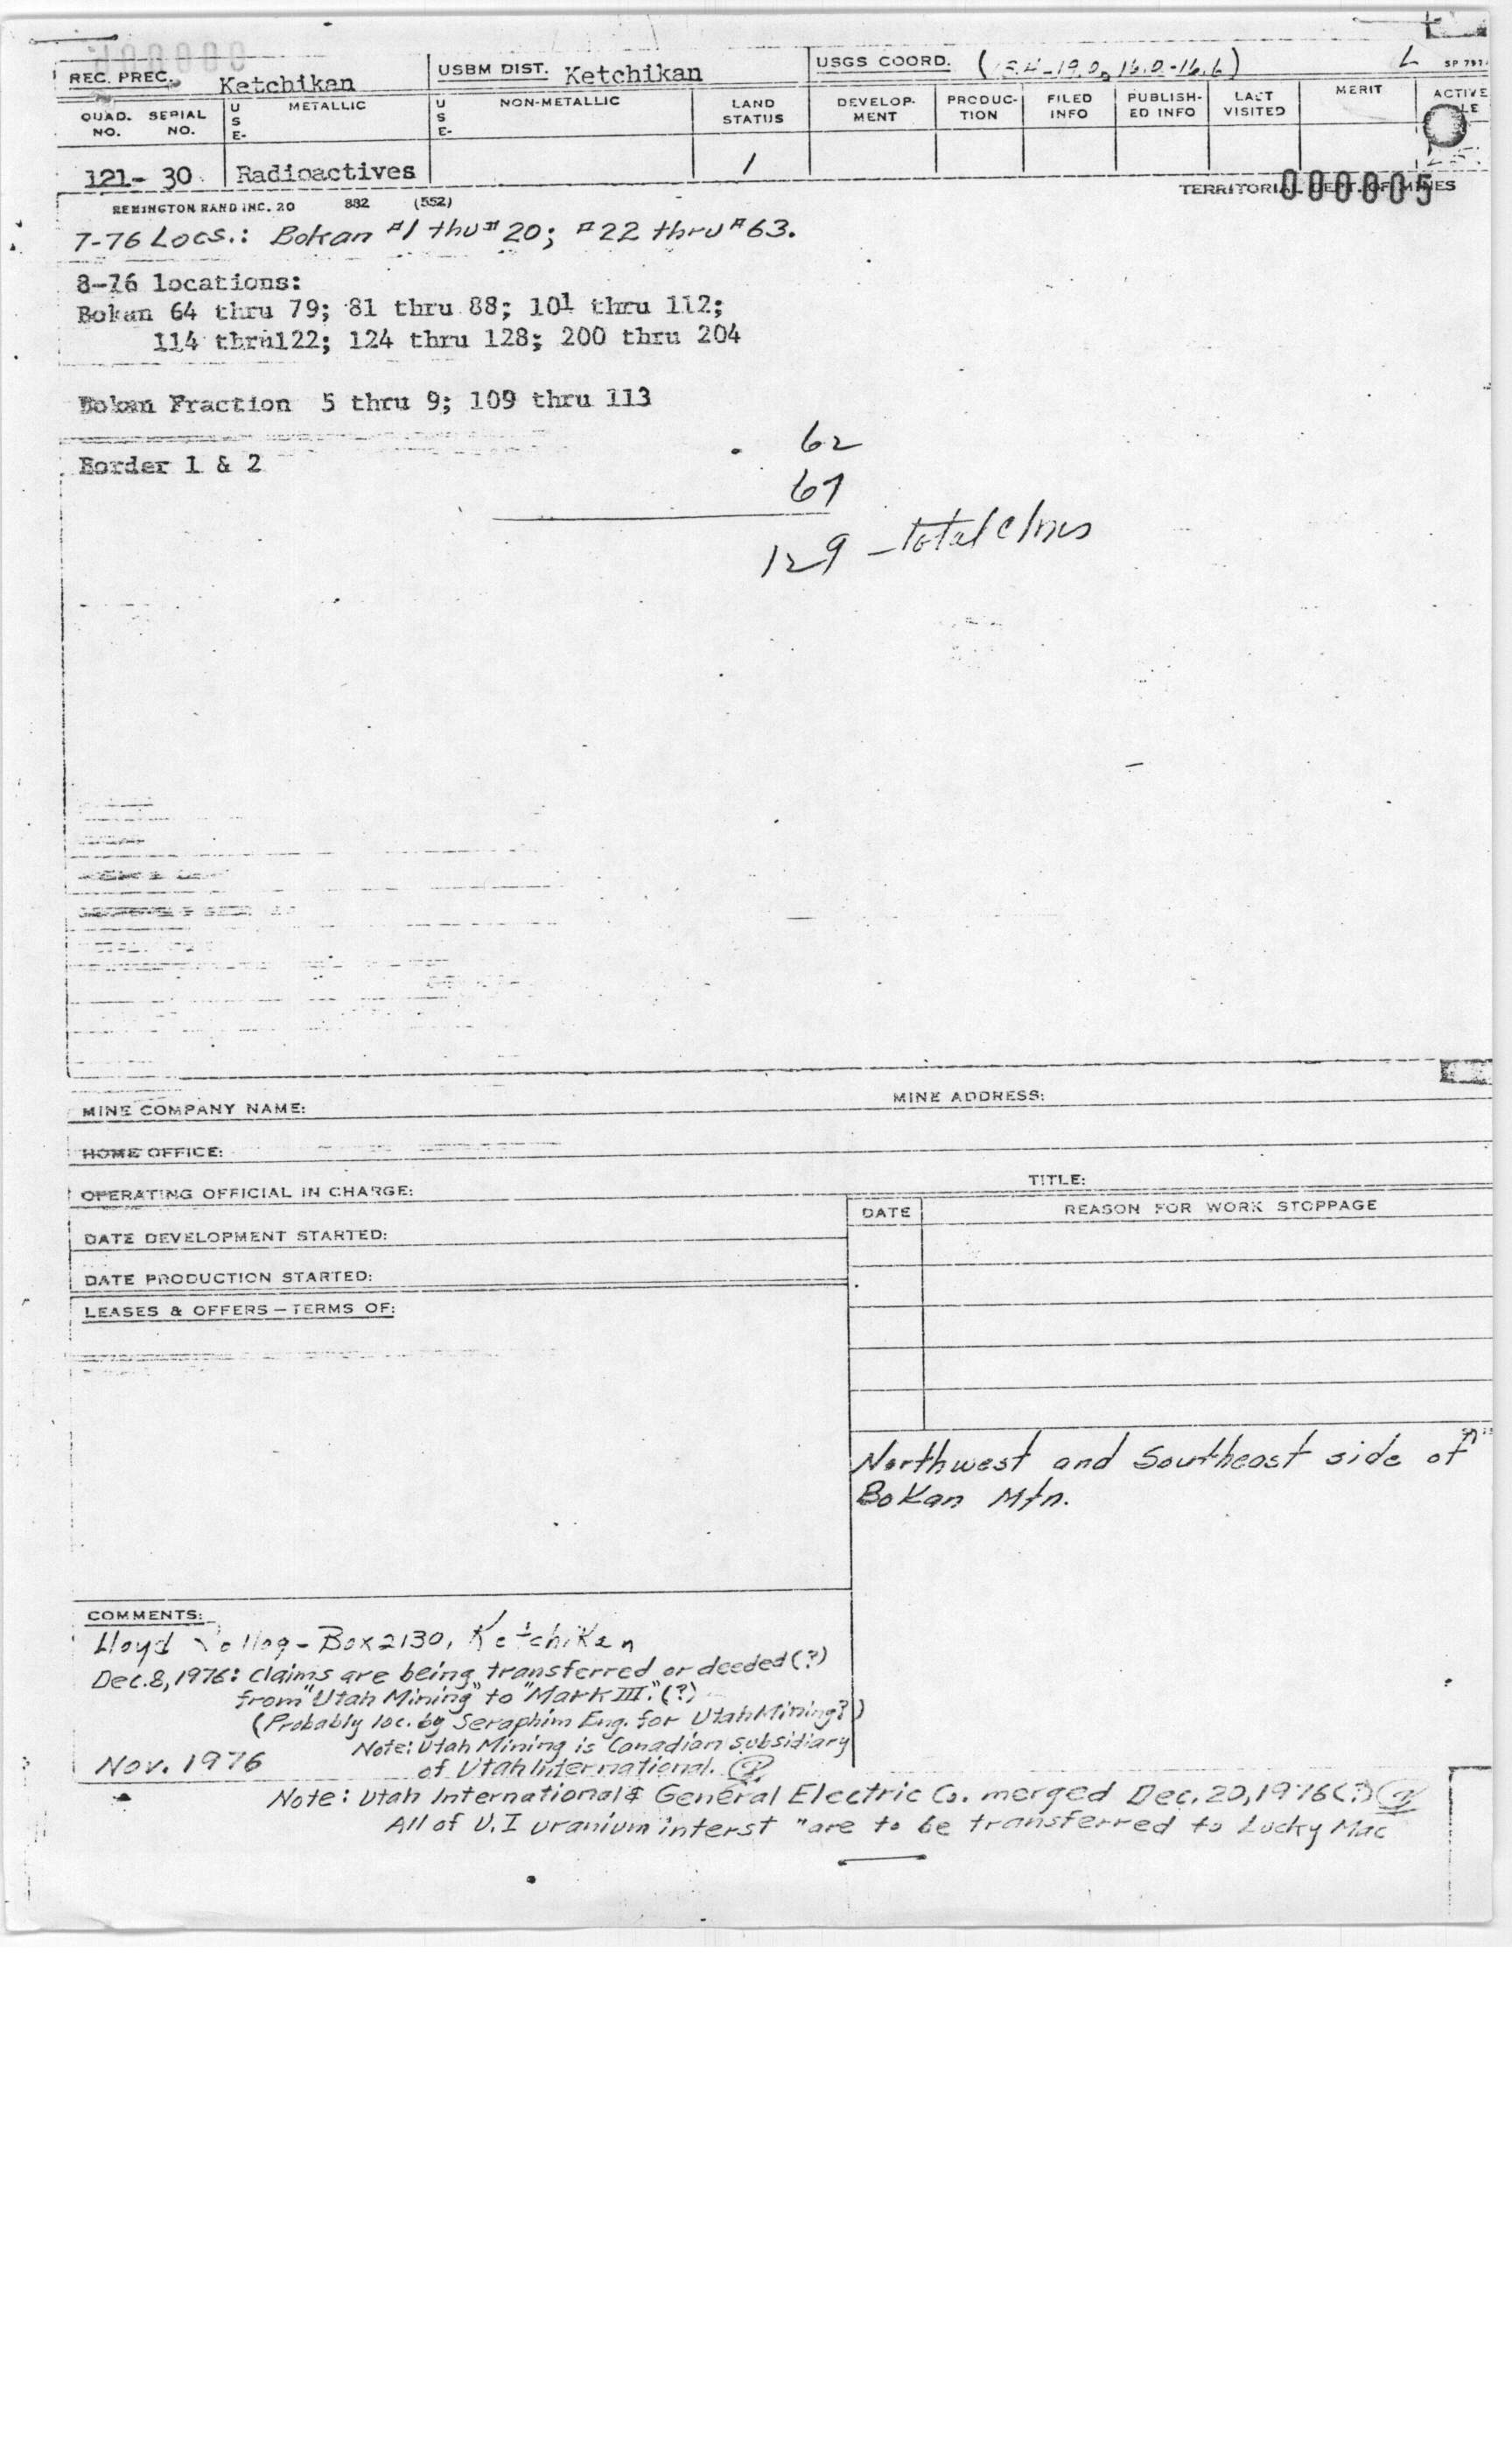 REC. PREC. Ketchikan USBM DIST. Ketchikan USGS COORD. L
QUAD. NO. SERIAL NO. USE- METALLIC USE- NON-METALLIC LAND STATUS DEVELOP-MENT PRODUC-TION FILED INFO PUBLISH-ED INFO LAST VISITED MERIT ACTIVE
121- 30 Radioactives 1
TERRITORIAL DEPT. OF MINES
000005
REMINGTON RAND INC. 20 882 (552)
7-76 Locs.: Bokan #1 thu #20; #22 thru #63.
8-76 locations:
Bokan 64 thru 79; 81 thru 88; 101 thru 112;
114 thru122; 124 thru 128; 200 thru 204
Bokan Fraction 5 thru 9; 109 thru 113
62
Border 1 & 2
67
129 - total clms
MINE COMPANY NAME: MINE ADDRESS:
HOME OFFICE:
OPERATING OFFICIAL IN CHARGE: TITLE:
DATE REASON FOR WORK STOPPAGE
DATE DEVELOPMENT STARTED:
DATE PRODUCTION STARTED:
LEASES & OFFERS — TERMS OF:
Northwest and Southeast side of
Bokan Mtn.
COMMENTS:
Lloyd - Box 2130, Ketchikan
Dec. 8, 1976: Claims are being transferred or deeded (?)
from "Utah Mining" to "Mark III." (?)
(Probably loc. by Seraphim Eng. for Utah Mining?)
Note: Utah Mining is Canadian subsidiary
Nov. 1976 of Utah International.
Note: Utah International & General Electric Co. merged Dec. 20, 1976 (?)
All of U.I uranium interst "are to be transferred to Lucky Mac